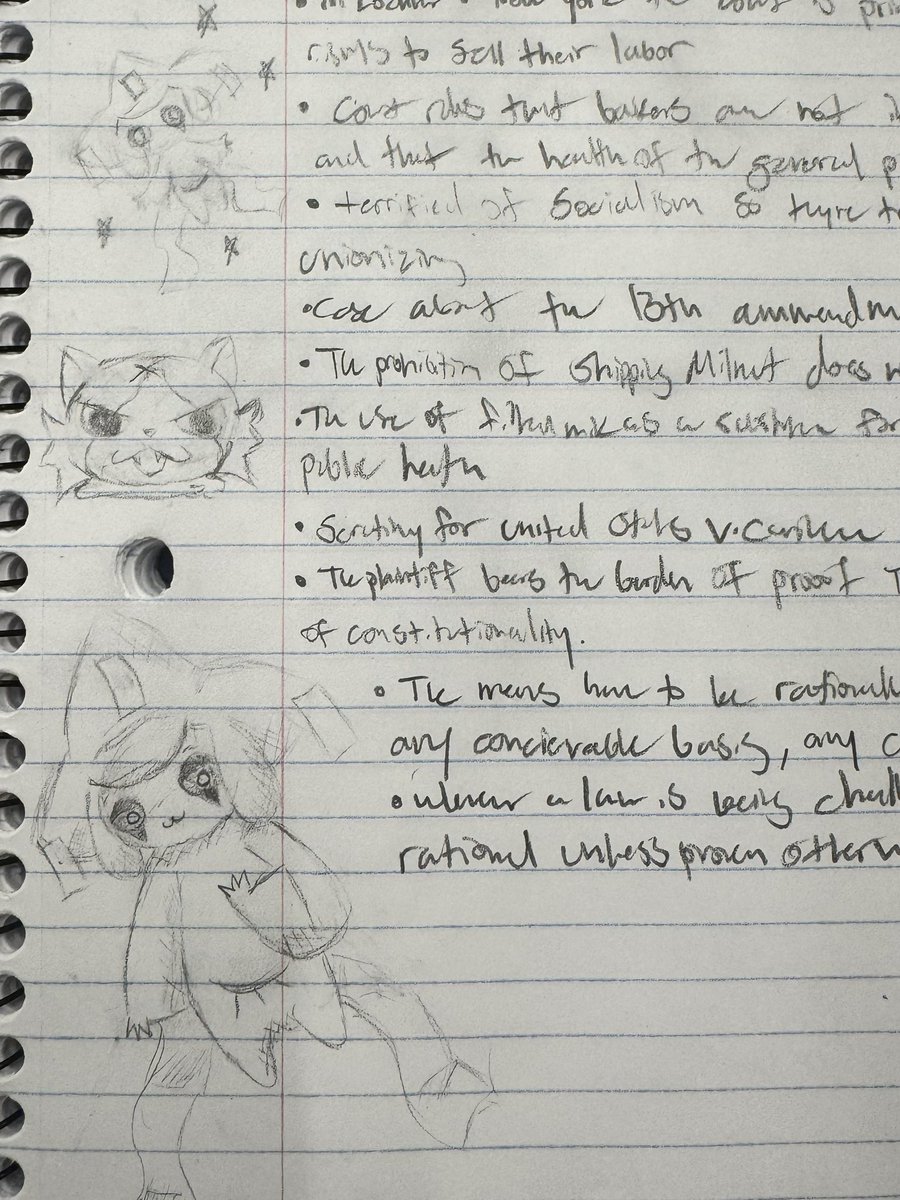 • in Lochner New York the court is
to sell their labor
• Court rules that bakers are not
and that the health of the general
• terrified of Socialism so
unionizing
• Case about the 13th ammendm
• The prohibition of Shipping Milnut does
• The use of as a for
public
• Scrutiny for united States v. Carolene
• The plaintiff bears the burden of proof
of constitutionality.
• The means have to be rationall
any concievable basis, any
• whenever a law is being chall
rational unless proven otherw